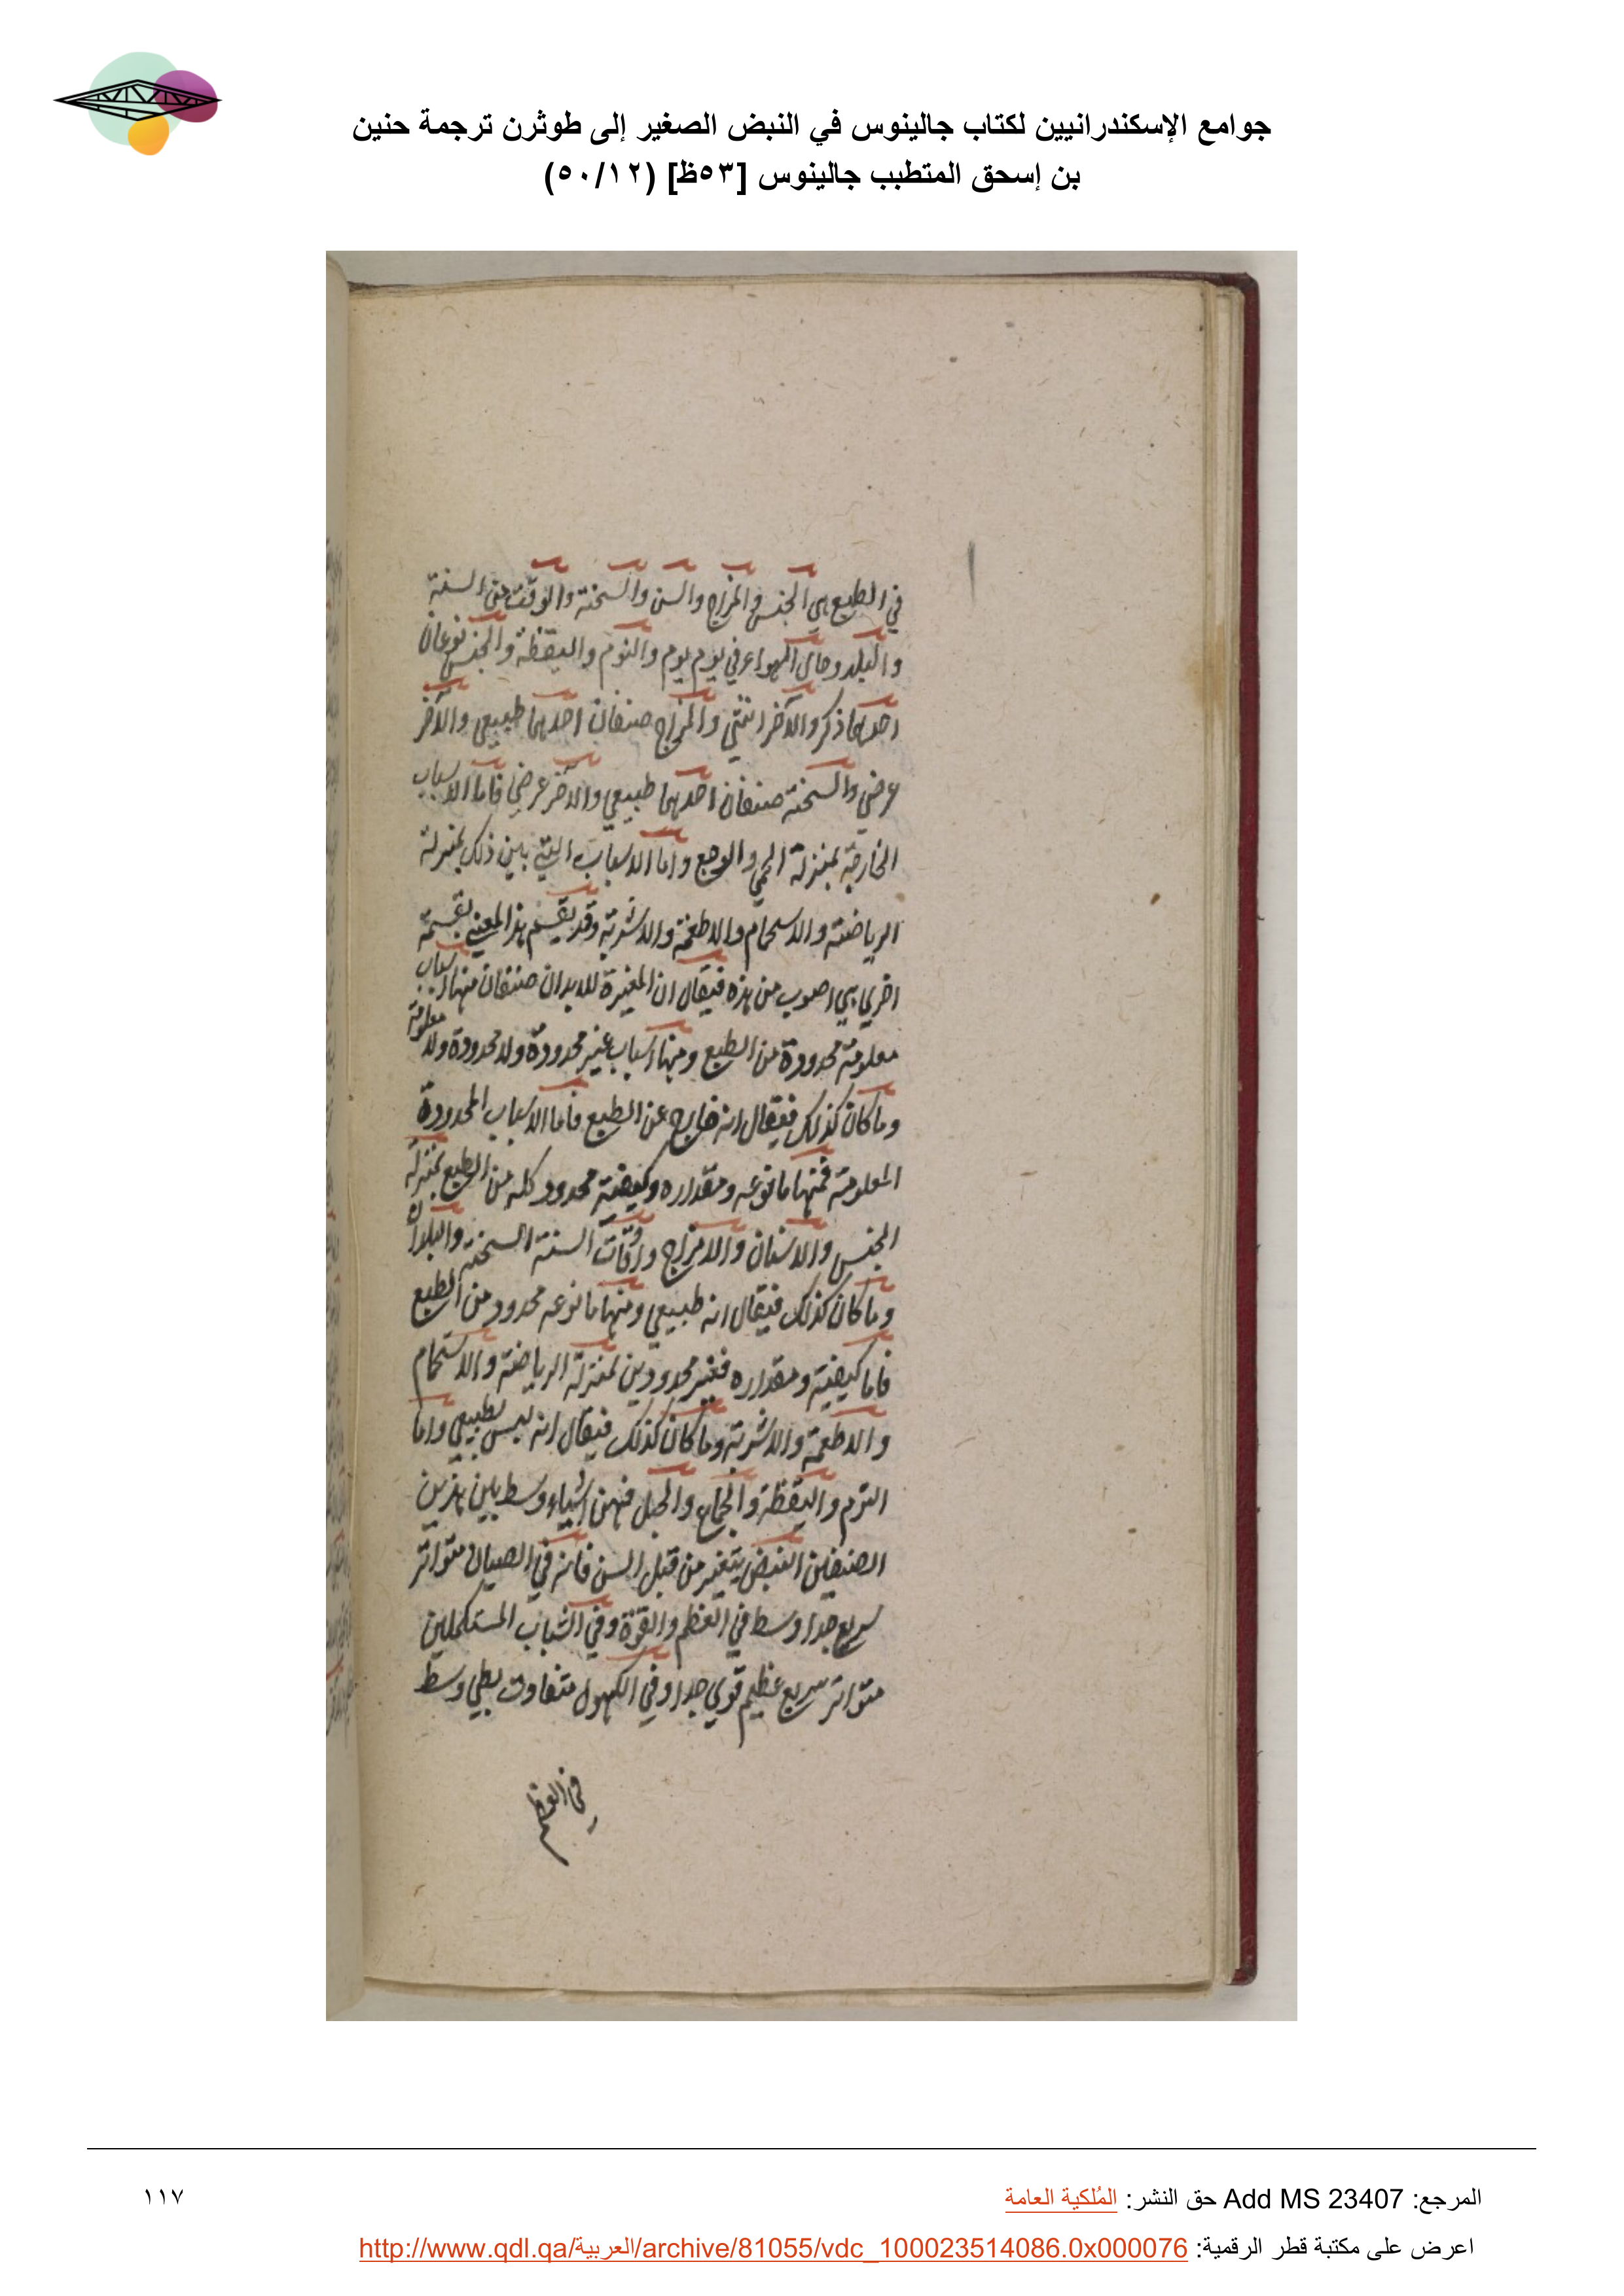 جوامع الإسكندرانيين لكتاب جالينوس في النبض الصغير إلى طوثرن ترجمة حنين
بن إسحق المتطبب جالينوس [٥٣ظ] (٥٠/١٢)
في الطبع هي الجنس والمزاج والسن والسحنة والوقت من السنة
والبلد وحال الهواء في يوم يوم والنوم واليقظة والجنس نوعان
احدهما ذكر والآخر انثى والمزاج صنفان احدهما طبيعي والآخر
عرضي والسحنة صنفان احدهما طبيعي والآخر عرضي فاما الاسباب
الخارجة بمنزلة الحمى والوجع واما الاسباب التي بين ذلك بمنزلة
الرياضة والاستحمام والاطعمة والاشربة وقد يقسم هذا المعنى بقسمة
اخرى هي اصوب من هذه فيقال ان المغيرة للابدان صنفان منها اسباب
معلومة محدودة من الطبع ومنها اسباب غير محدودة ولا محدودة ولا معلومة
وما كان كذلك فيقال انه خارج عن الطبع فاما الاسباب المحدودة
المعلومة فمنها ما نوعه ومقداره وكيفية محدود كله من الطبع بمنزلة
الجنس والاسنان والامزاج واوقات السنة السحنة والبلدان
وما كان كذلك فيقال انه طبيعي ومنها ما نوعه محدود من الطبع
فاما كيفية ومقداره فغير محدودين بمنزلة الرياضة والاستحمام
والاطعمة والاشربة وما كان كذلك فيقال انه ليس بطبيعي واما
النوم واليقظة والجماع والحبل فهن اشياء وسط بين هذين
الصنفين النبض يتغير من قبل السن فانه في الصبيان متواتر
سريع جدا وسط في العظم والقوة وفي الشباب المستكملين
متواتر سريع عظيم قوي جدا وفي الكهول متفاوت بطي وسط
في العظم
المرجع: Add MS 23407 حق النشر: المُلكية العامة
١١٧
اعرض على مكتبة قطر الرقمية: http://www.qdl.qa/العربية/archive/81055/vdc_100023514086.0x000076